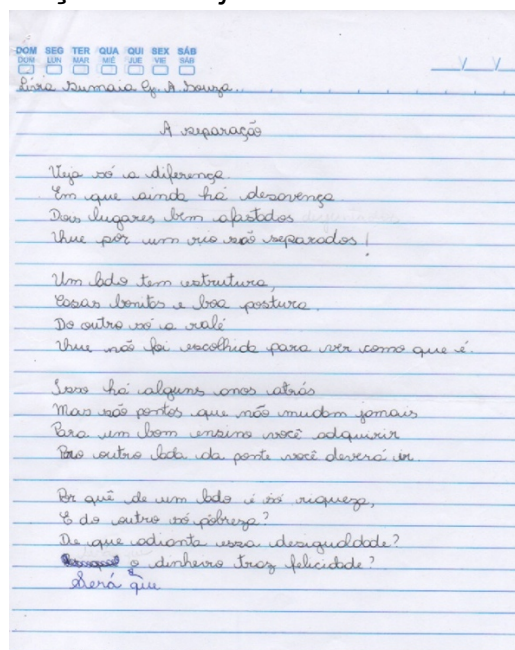 DOM SEG TER QUA QUI SEX SÁB
DOM LUN MAR MIÉ JUE VIE SÁB
Lívia A. Souza
A separação
Veja só a diferença
Em que ainda há desavença
Dois lugares bem afastados
Que por um rio são separados!
Um lado tem estrutura,
Casas bonitas e boa postura.
Do outro só a ralé
Que não foi escolhida para ver como que é.
Isso há alguns anos atrás
Mas são pontos que não mudam jamais
Para um bom ensino você adquirir
Pro outro lado da ponte você deverá ir.
Por quê de um lado é só riqueza,
E do outro só pobreza?
De que adianta essa desigualdade?
o dinheiro traz felicidade?
Será que